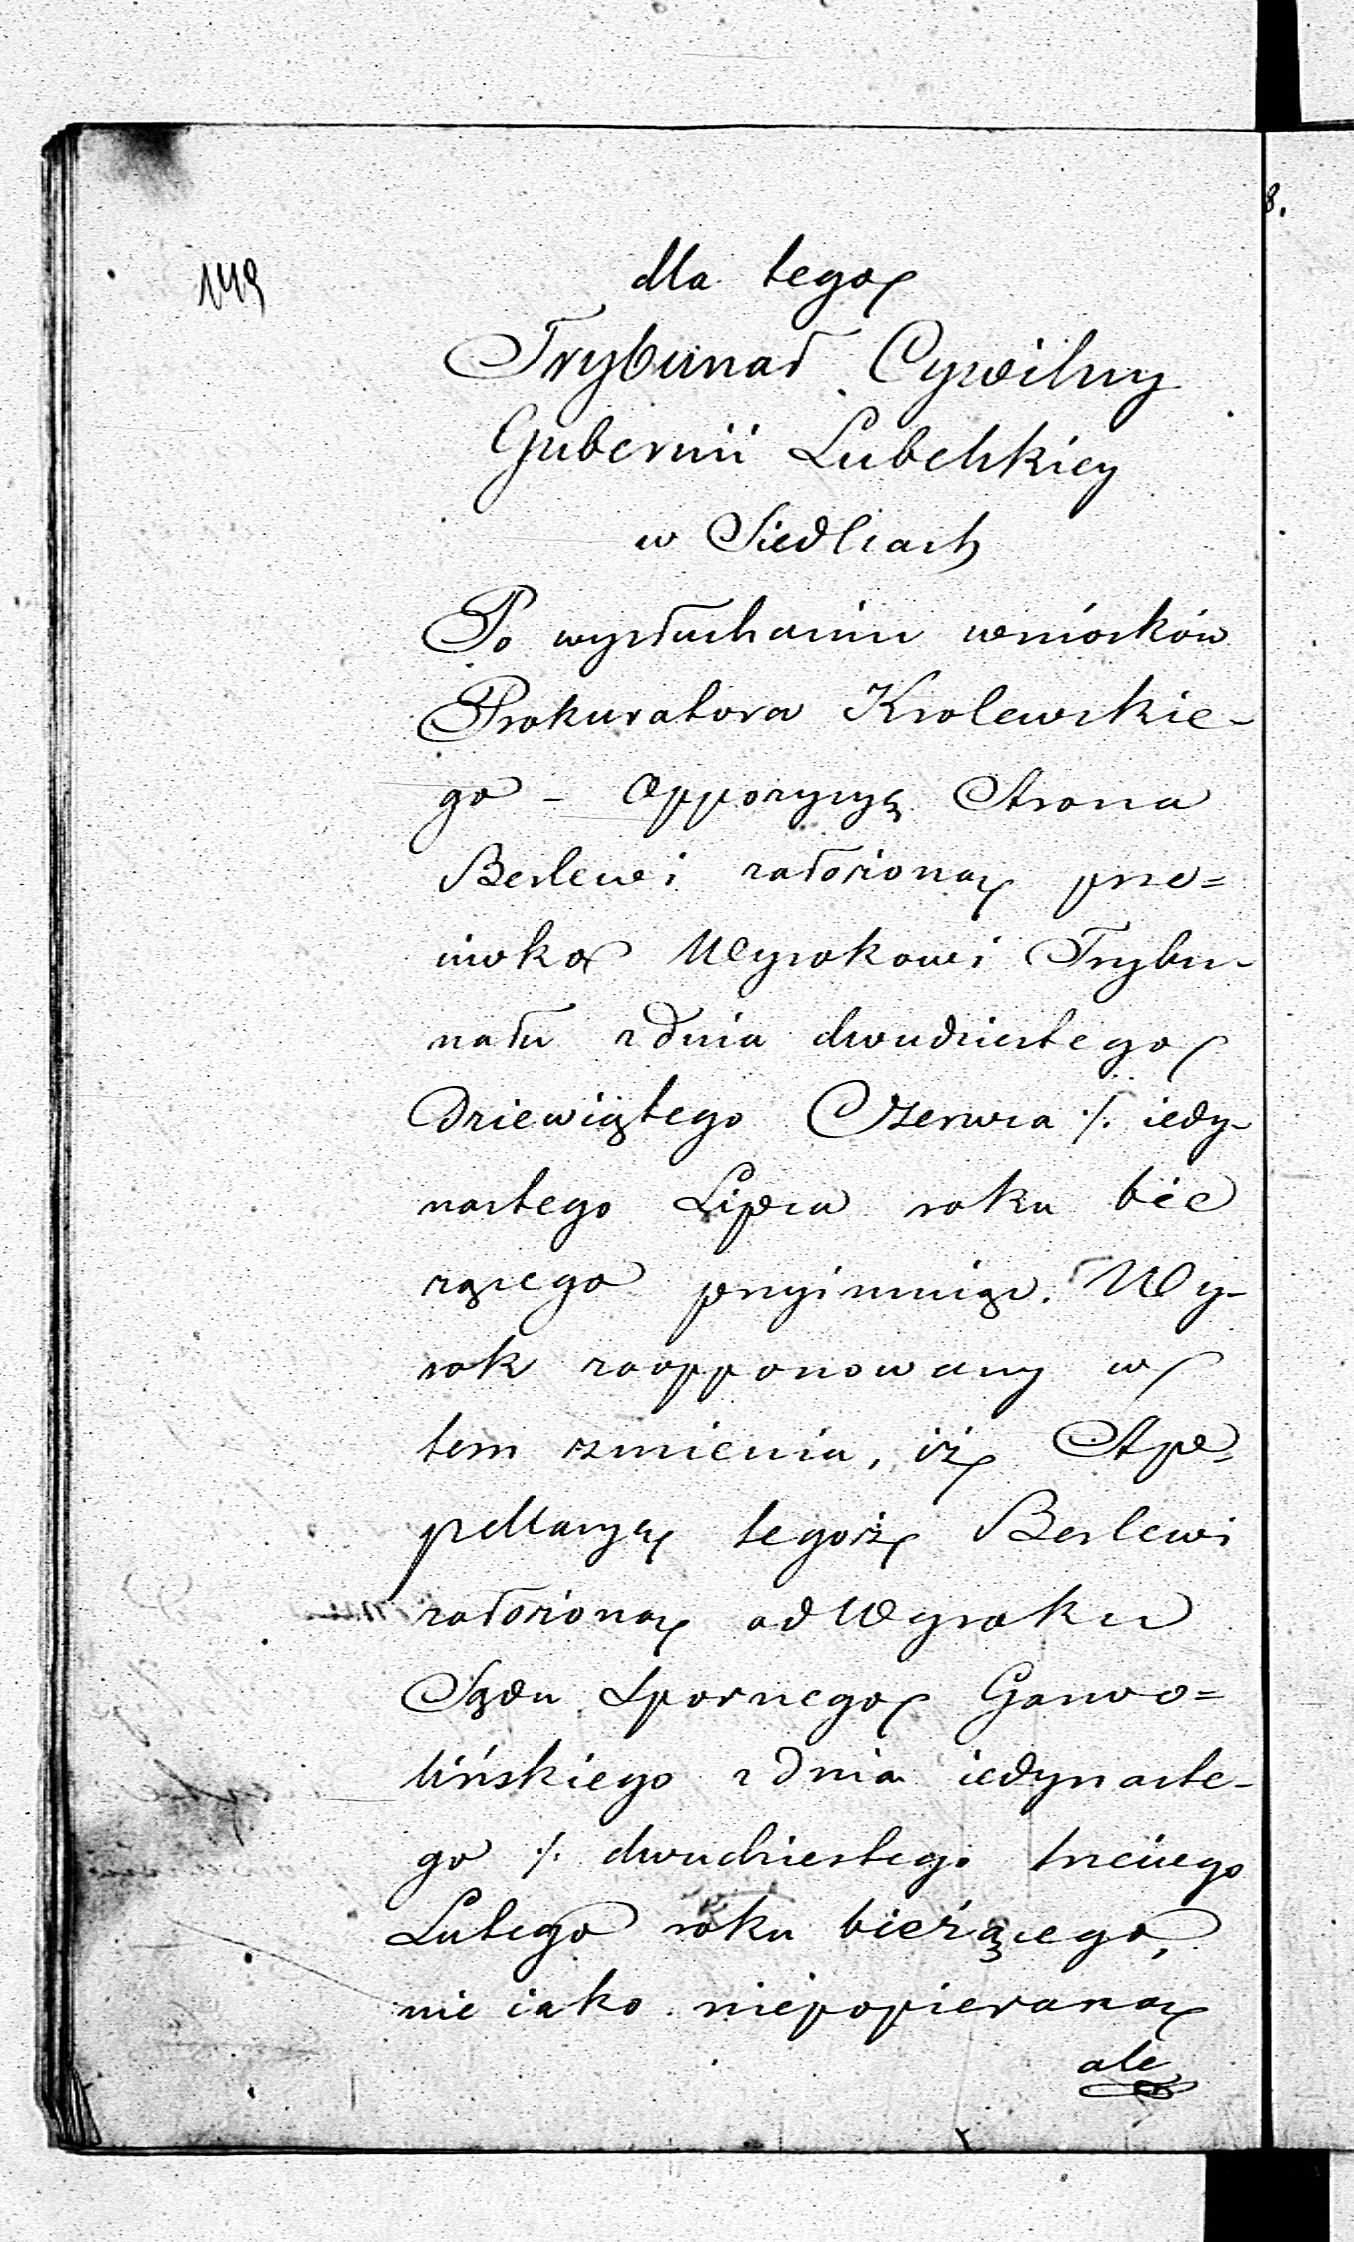 8.
149
dla tego
Trybunał Cywilny
Gubernii Lubelskiey
w Siedlcach
Po wysłuchaniu wniosków
Prokuratora Krolewskie-
go - Oppozycyą Strona
Berlewi założoną prze=
ciwko Wyrokowi Trybu-
nału z dnia dwudziestego
Dziewiątego Czerwca /. iedy-
nastego Lipca roku bie
rzącego przyimuiąc. Wy-
rok zaopponowany w
tem zmienia, iż Ape=
pellacyą tegoż Berlewi
założoną od Wyroku
Sądu Spornego Garwo=
lińskiego z dnia iedynaste-
go /. dwudziestego trzeciego
Lutego roku bieżącego,
nie iako niepopieraną
ale